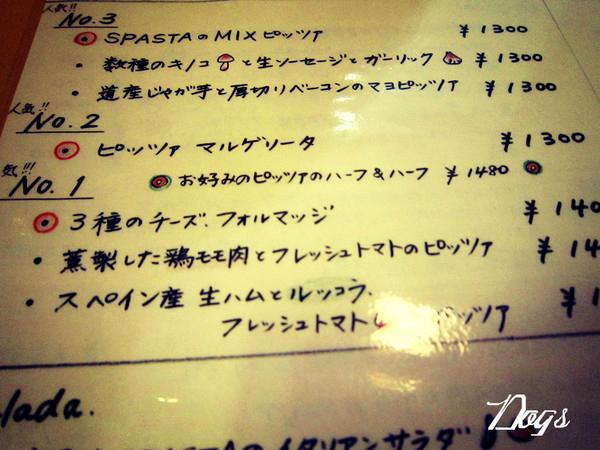 人気!!
No.3
SPASTAのMIXピッツァ ¥1300
・数種のキノコと生ソーセージとガーリック ¥1300
・道産じゃが芋と厚切りベーコンのマヨピッツァ ¥1300
人気!!
No.2
ピッツァ マルゲリータ ¥1300
気!!!
No.1
お好みのピッツァのハーフ&ハーフ ¥1480
3種のチーズ.フォルマッジ ¥140
・薫製した鶏モモ肉とフレッシュトマトのピッツァ ¥14
・スペイン産 生ハムとルッコラ.
フレッシュトマト ピッツァ ¥1
lada.
のイタリアンサラダ
Dogs